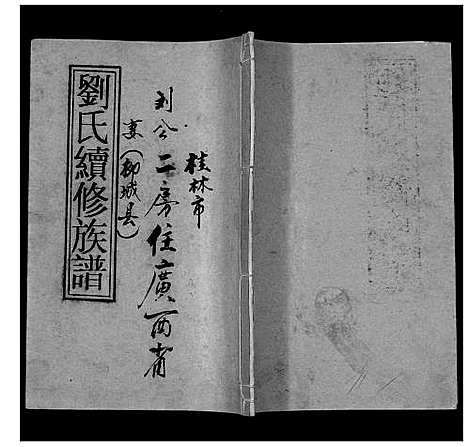 桂林市
二房住廣西省
(柳城县)
劉氏續修族譜